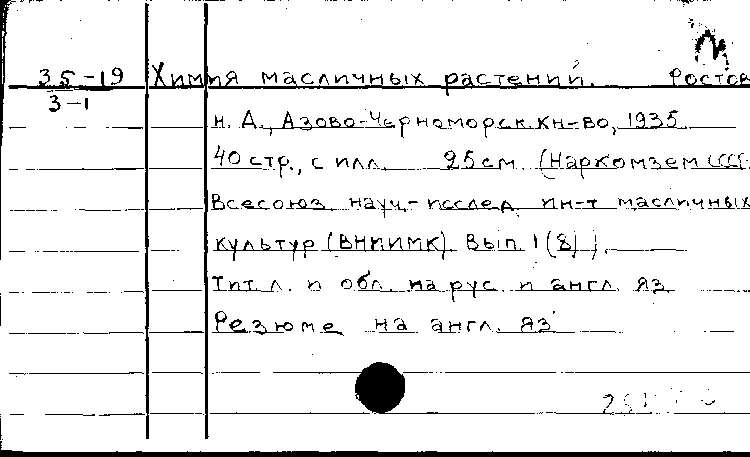 35-19 Химия масличных растений. Ростов
3-1
н. Д., Азово-Черноморск. кн-во, 1935.
40 стр., с илл. 25 см. (Наркомзем СССР.
Всесоюз. науч.-исслед. ин-т масличных
культур (ВНИИМК). Вып. 1(8)).
Тит. л. и обл. на рус. и англ. яз.
Резюме на англ. яз.